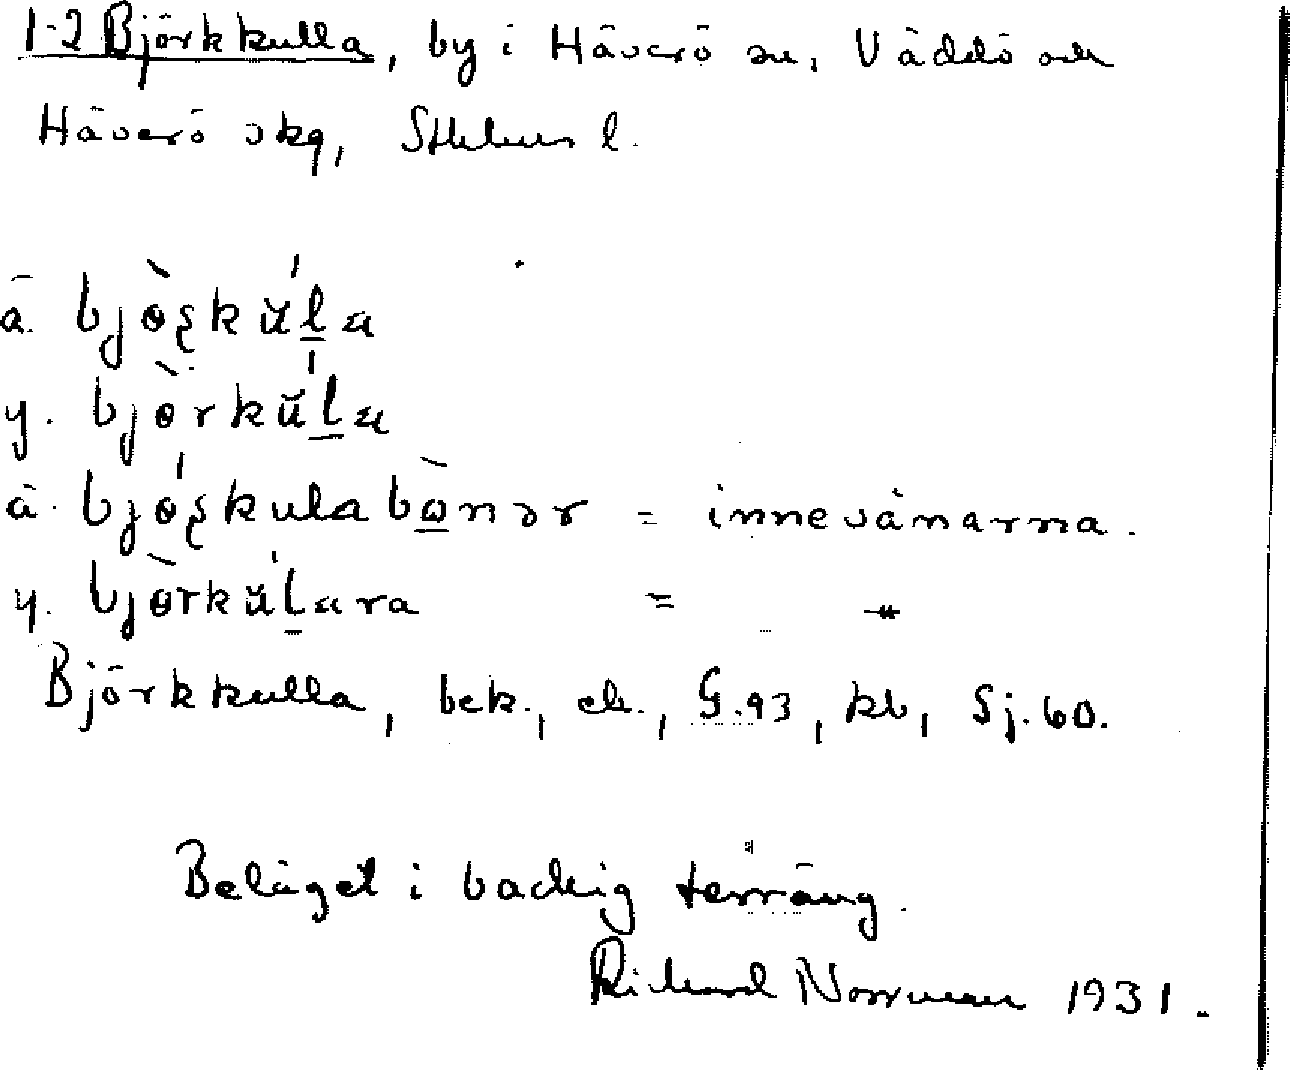 1-2 Björkkulla, by i Häverö sn, Väddö och
Häverö skg, Sthlms l.
ä. bjɵ̀ʂkŭ́la
y. bjɵ̀rkŭ́la
ä. bjɵ́ʂkulabònər = innevånarna.
y. bjɵ̀rkŭ́lara = -"-
Björkkulla, bek., ek., G.93, kb, Sj.60.
Beläget i backig terräng.
Richard Norrman 1931.